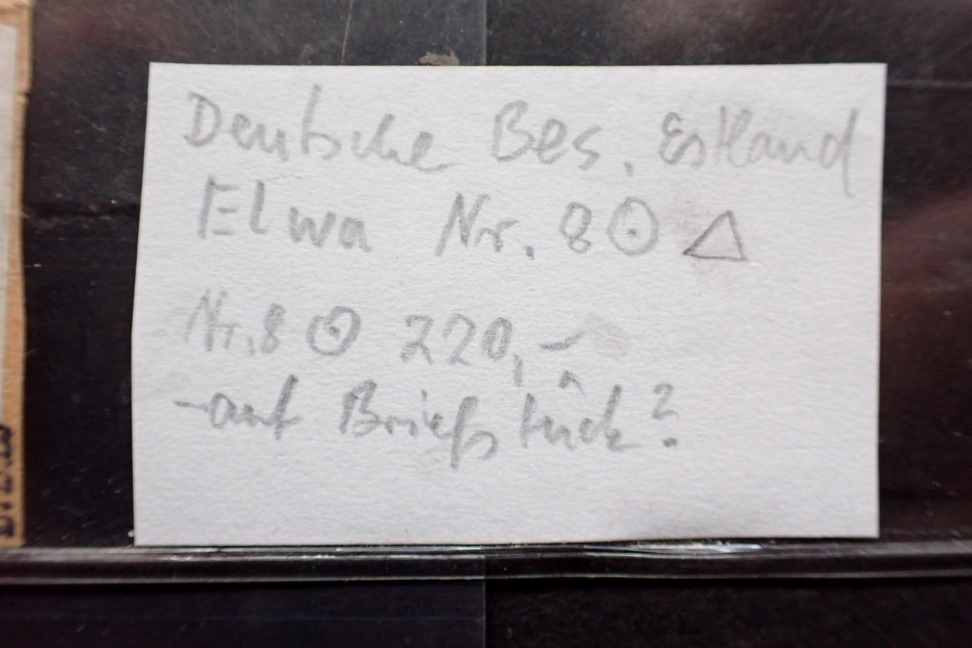 Deutsche Bes. Estland
Elwa Nr. 8 ⊙ △
Nr. 8 ⊙ 220,-
- auf Briefstück?